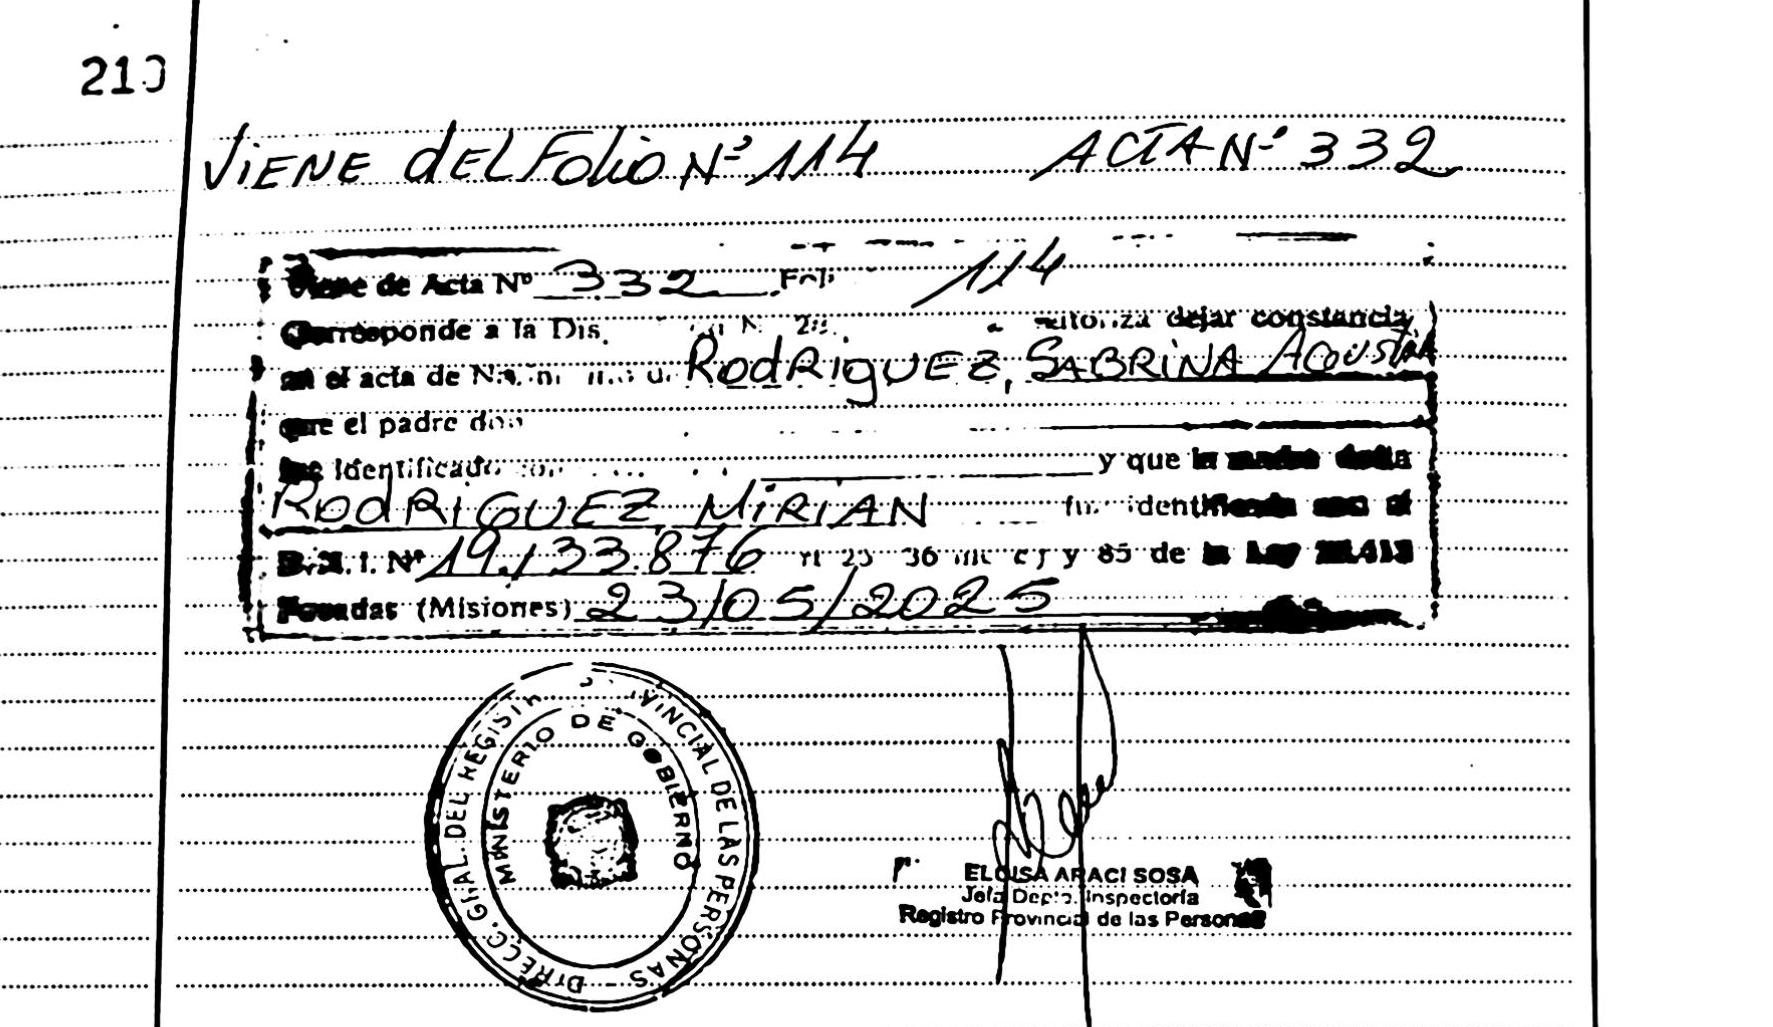 210
ViENE dEL Folio Nº 114 ACTA Nº 332
Viene de Acta Nº 332 Foli 114
Corresponde a la Dis. autoriza dejar constancia
en el acta de RodRiguEZ, SABRiNA AgustiNA
que el padre don
fue identificado con y que la madre doña
RodRiGUEZ MiRiAN fue identificada con el
D.N.I. Nº 19.133.876 36 y 85 de la Ley
Posadas (Misiones) 23/05/2025
DIRECC. GRAL. DEL REGISTR VINCIAL DE LAS PERSONAS
MINISTERIO DE GOBIERNO
ELOISA ARACI SOSA
Jefa Depto. Inspectoría
Registro Provincial de las Personas